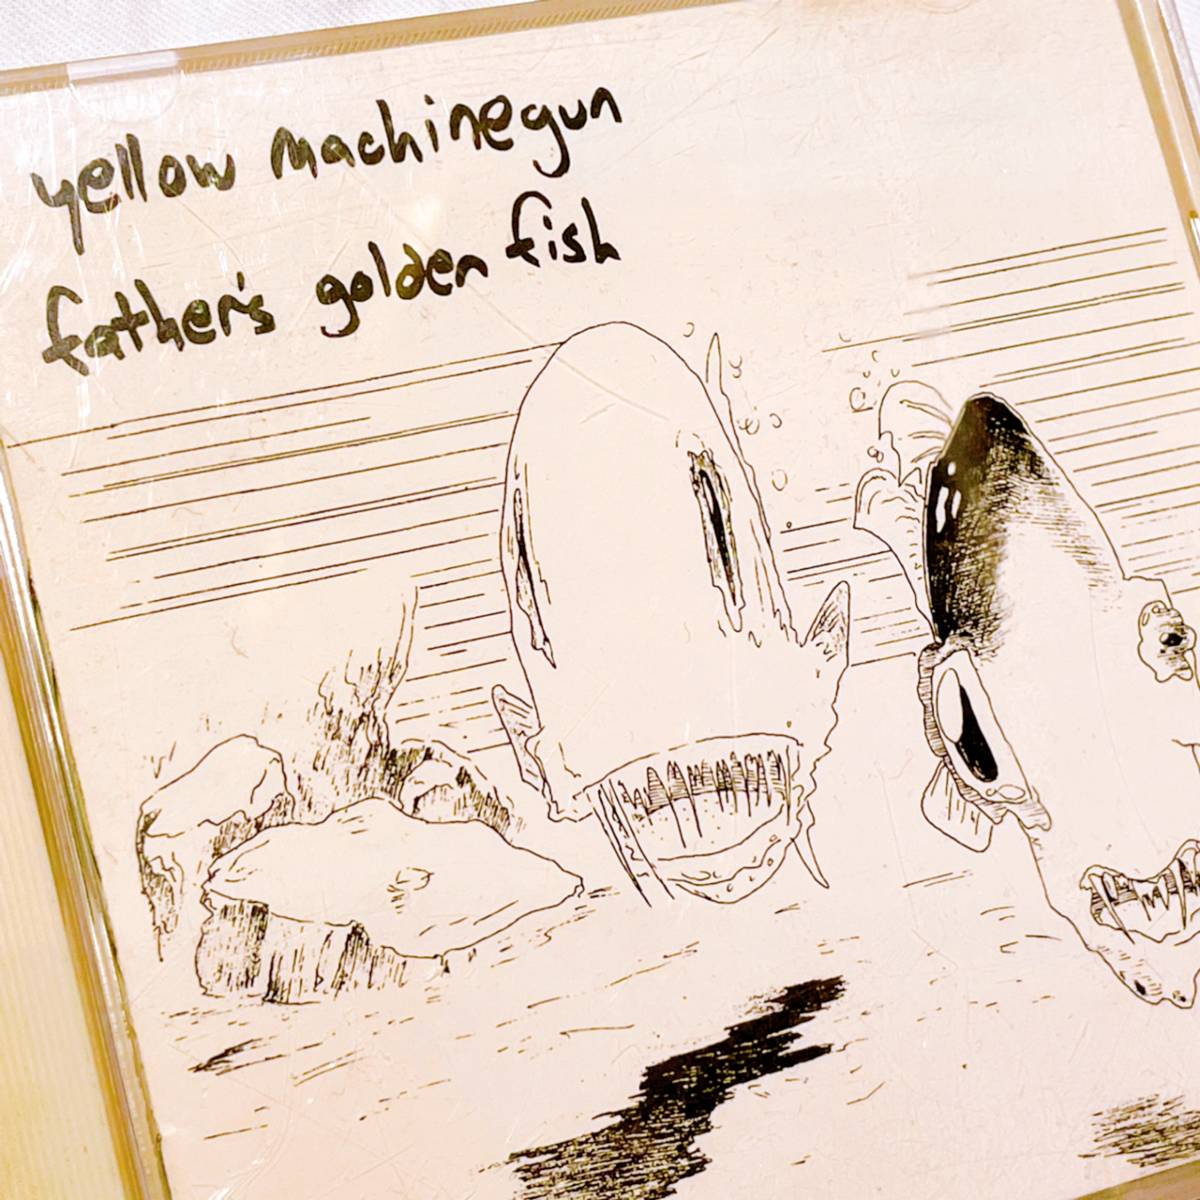 yellow machinegun
father's golden fish